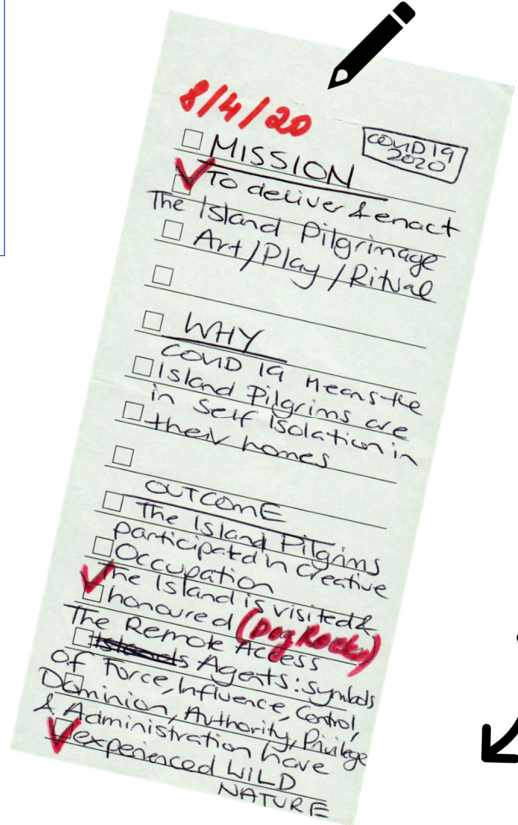 8/4/20
COVID 19
2020
MISSION
To deliver & enact
The Island Pilgrimage
Art/Play/Ritual
WHY
COVID 19 Means the
Island Pilgrims are
in Self Isolation in
their homes
OUTCOME
The Island Pilgrims
participated in Creative
Occupation
The Island is visited &
honoured (Dog Rocks)
The Remote Access
Islands Agents: symbols
of Force, Influence, Control,
Dominion, Authority, Privilege
& Administration have
experienced WILD
NATURE